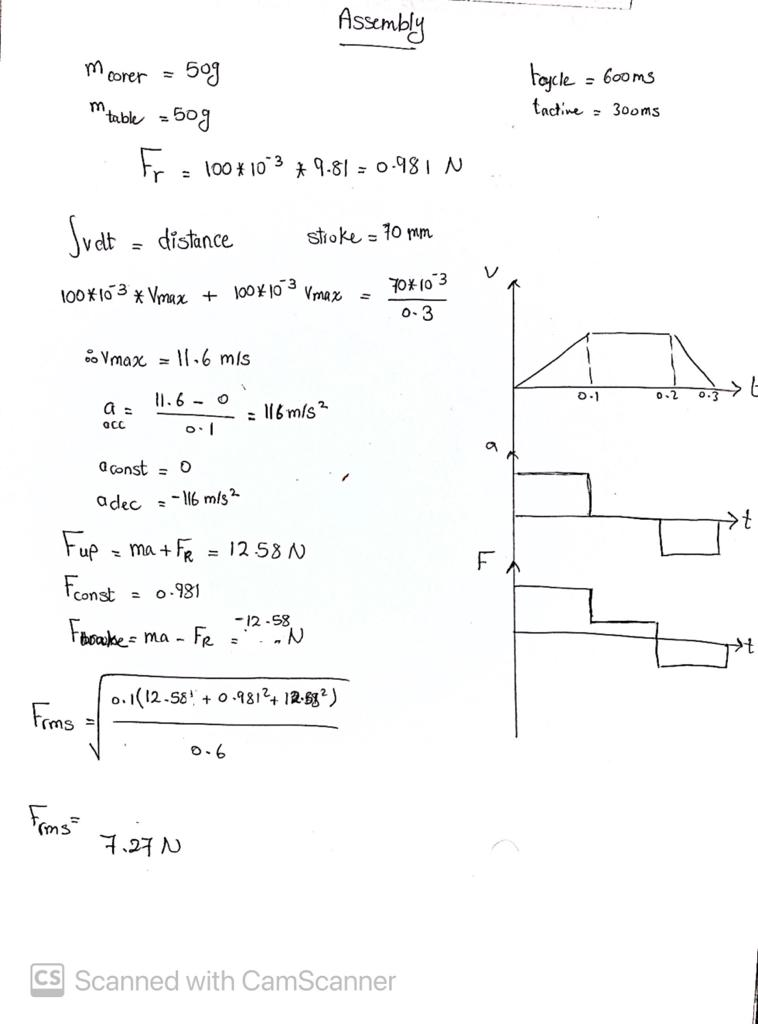 Assembly
m corer = 50g
tcycle = 600ms
m table = 50g
tactive = 300ms
Fr = 100 * 10^-3 * 9.81 = 0.981 N
∫vdt = distance stroke = 70 mm
100*10^-3 * Vmax + 100*10^-3 Vmax = 70*10^-3 / 0.3
∴ Vmax = 11.6 m/s
a acc = 11.6 - 0 / 0.1 = 116 m/s²
a const = 0
a dec = -116 m/s²
Fup = ma + FR = 12.58 N
Fconst = 0.981
= ma - FR = -12.58 N
Frms = √ 0.1(12.58² + 0.981² + 12.58²) / 0.6
Frms = 7.27 N
V
0.1 0.2 0.3 t
a
t
F
t
CS Scanned with CamScanner